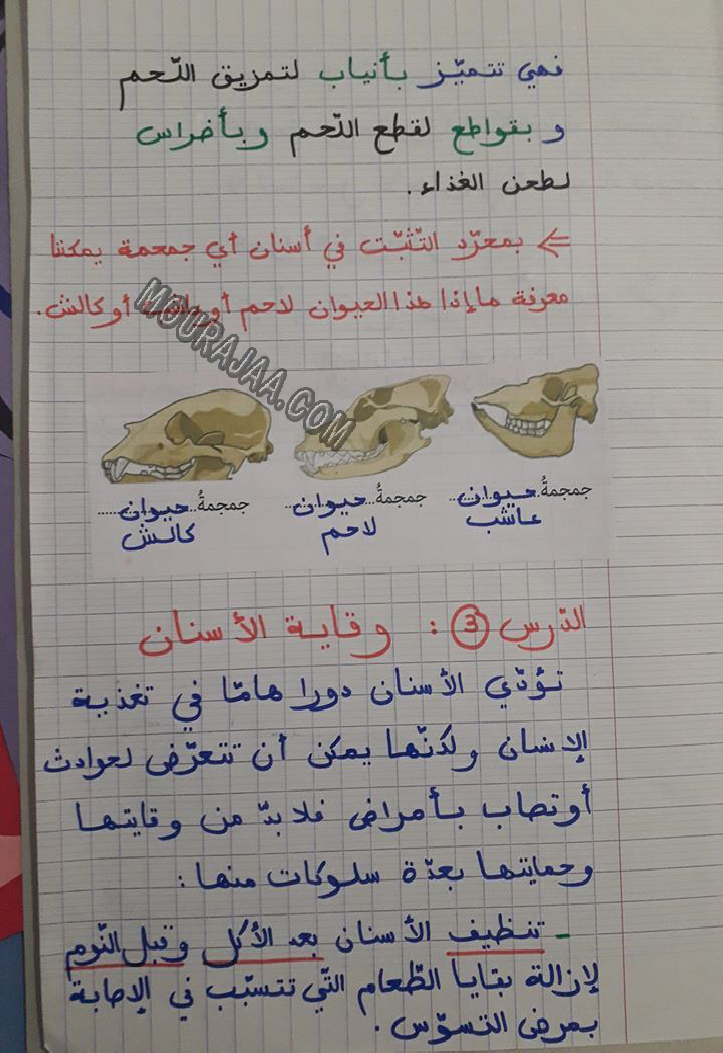 فهي تتميّز بأنياب لتمزيق اللّحم
و بقواطع لقطع اللّحم وبأضراس
لطحن الغذاء.
⇐ بمجرّد التّثبّت في أسنان أي جمجمة يمكننا
معرفة ما إذا هذا الحيوان لاحم أو أو كالش.
MOURAJAA.COM
جمجمةُ حيوان عاشب
جمجمةُ حيوان لاحم
جمجمةُ حيوان كالش
الدّرس 3 : وقاية الأسنان
تؤدّي الأسنان دورا هامّا في تغذية
الإنسان ولكنّها يمكن أن تتعرّض لحوادث
أو تصاب بأمراض فلا بدّ من وقايتها
وحمايتها بعدّة سلوكات منها :
- تنظيف الأسنان بعد الأكل وقبل النّوم
لإزالة بقايا الطّعام الّتي تتسبّب في الإصابة
بمرض التسوّس.